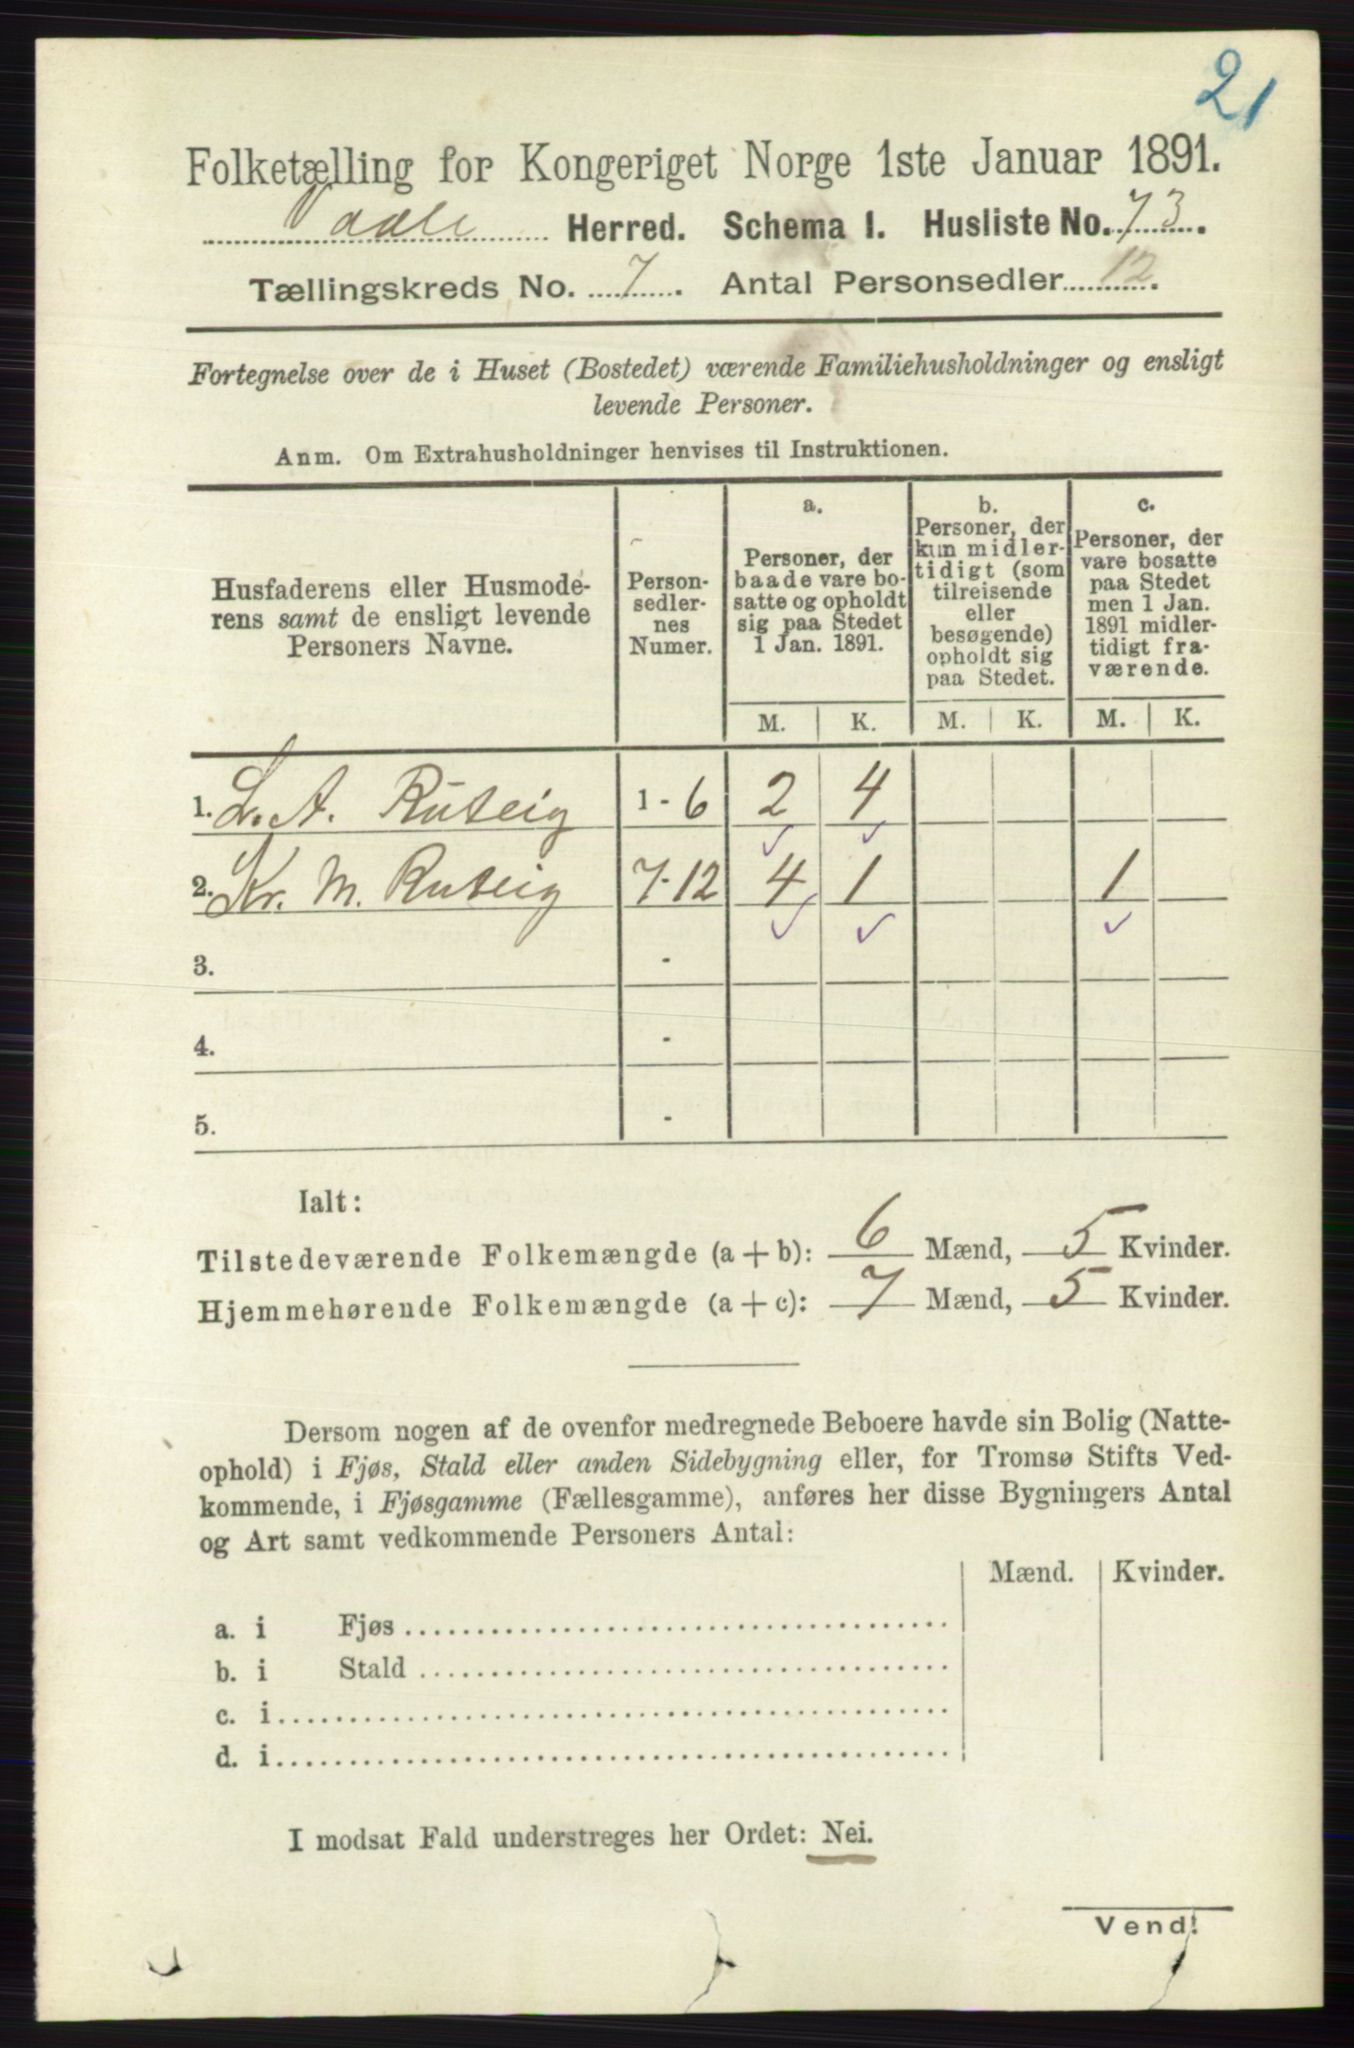 21
Folketælling for Kongeriget Norge 1ste Januar 1891.
Vaale Herred. Schema I. Husliste No. 73.
Tællingskreds No. 7. Antal Personsedler 12.
Fortegnelse over de i Huset (Bostedet) værende Familiehusholdninger og ensligt
levende Personer.
Anm. Om Extrahusholdninger henvises til Instruktionen.
Husfaderens eller Husmode-
rens samt de ensligt levende
Personers Navne.
Person-
sedler-
nes
Numer.
a.
Personer, der
baade vare bo-
satte og opholdt
sig paa Stedet
1 Jan. 1891.
b.
Personer, der
kun midler-
tidigt (som
tilreisende
eller
besøgende)
opholdt sig
paa Stedet.
c.
Personer, der
vare bosatte
paa Stedet
men 1 Jan.
1891 midler-
tidigt fra-
værende.
M. K. M. K. M. K.
1. L. A. Ruseig 1 - 6 2 4
2. Kr. M. Ruseig 7-12 4 1 1
3. -
4. -
5. -
Ialt:
Tilstedeværende Folkemængde (a + b): 6 Mænd, 5 Kvinder.
Hjemmehørende Folkemængde (a + c): 7 Mænd, 5 Kvinder.
Dersom nogen af de ovenfor medregnede Beboere havde sin Bolig (Natte-
ophold) i Fjøs, Stald eller anden Sidebygning eller, for Tromsø Stifts Ved-
kommende, i Fjøsgamme (Fællesgamme), anføres her disse Bygningers Antal
og Art samt vedkommende Personers Antal:
Mænd. Kvinder.
a. i Fjøs
b. i Stald
c. i
d. i
I modsat Fald understreges her Ordet: Nei.
Vend!